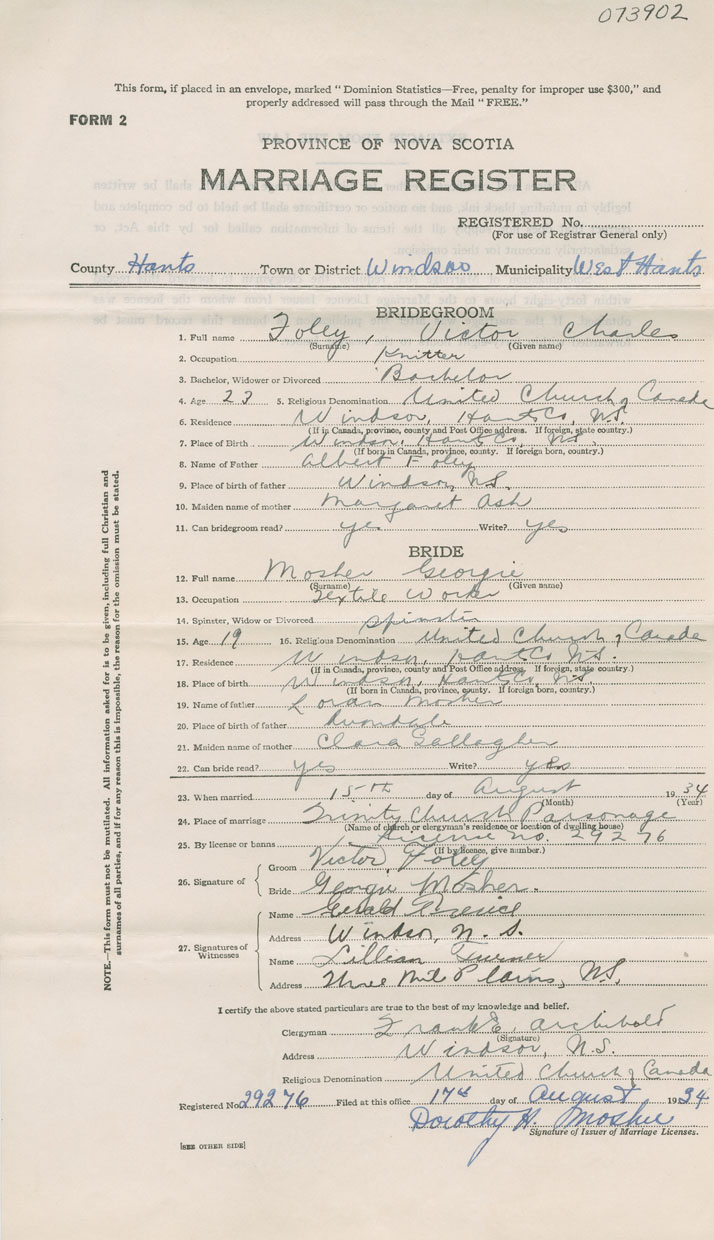 073902
This form, if placed in an envelope, marked "Dominion Statistics—Free, penalty for improper use $300," and
properly addressed will pass through the Mail "FREE."
FORM 2
PROVINCE OF NOVA SCOTIA
MARRIAGE REGISTER
REGISTERED No.
(For use of Registrar General only)
County Hants Town or District Windsor Municipality West Hants
BRIDEGROOM
1. Full name Foley, Victor Charles
(Surname) (Given name)
2. Occupation Knitter
3. Bachelor, Widower or Divorced Bachelor
4. Age 23 5. Religious Denomination United Church of Canada
6. Residence Windsor, Hants Co, N.S.
(If in Canada, province, county and Post Office address. If foreign, state country.)
7. Place of Birth Windsor, Hants Co, N.S.
(If born in Canada, province, county. If foreign born, country.)
8. Name of Father Albert Foley
9. Place of birth of father Windsor, N.S.
10. Maiden name of mother Margaret Ash
11. Can bridegroom read? yes Write? yes
BRIDE
12. Full name Mosher Georgie
(Surname) (Given name)
13. Occupation Textile Worker
14. Spinster, Widow or Divorced Spinster
15. Age 19 16. Religious Denomination United Church of Canada
17. Residence Windsor, Hants Co, N.S.
(If in Canada, province, county and Post Office address. If foreign, state country.)
18. Place of birth Windsor, Hants Co, N.S.
(If born in Canada, province, county. If foreign born, country.)
19. Name of father Loran Mosher
20. Place of birth of father Avondale
21. Maiden name of mother Clara Gallagher
22. Can bride read? yes Write? yes
23. When married 15th day of August 1934
(Month) (Year)
24. Place of marriage Trinity Church Parsonage
(Name of church or clergyman's residence or location of dwelling house)
25. By license or banns License no. 29276
(If by licence, give number.)
26. Signature of Groom Victor Foley
Bride Georgie Mosher.
27. Signatures of Witnesses
Name Gerald
Address Windsor, N.S.
Name Lillian Turner
Address Three Mile Plains, N.S.
I certify the above stated particulars are true to the best of my knowledge and belief.
Clergyman Frank E. Archibald
(Signature)
Address Windsor, N.S.
Religious Denomination United Church of Canada
Registered No 29276 Filed at this office 17th day of August 1934
Dorothy H. Mosher
Signature of Issuer of Marriage Licenses.
[SEE OTHER SIDE]
NOTE.—This form must not be mutilated. All information asked for is to be given, including full Christian and
surnames of all parties, and if for any reason this is impossible, the reason for the omission must be stated.